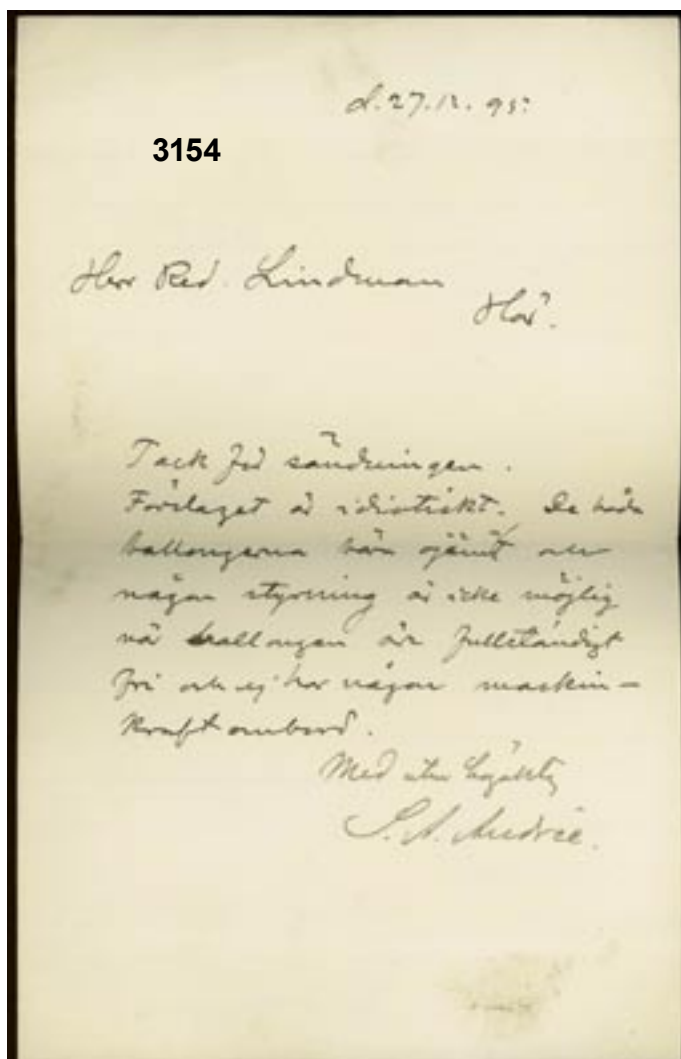 d. 27.12.95.
3154
Herr Red. Lindman
Här.
Tack för sändningen.
Förslaget är idiotiskt. De båda
ballongerna bära ojämt och
någon styrning är icke möjlig
när ballongen är fullständigt
fri och ej har någon maskin-
kraft ombord.
Med
S. A. Andrée.